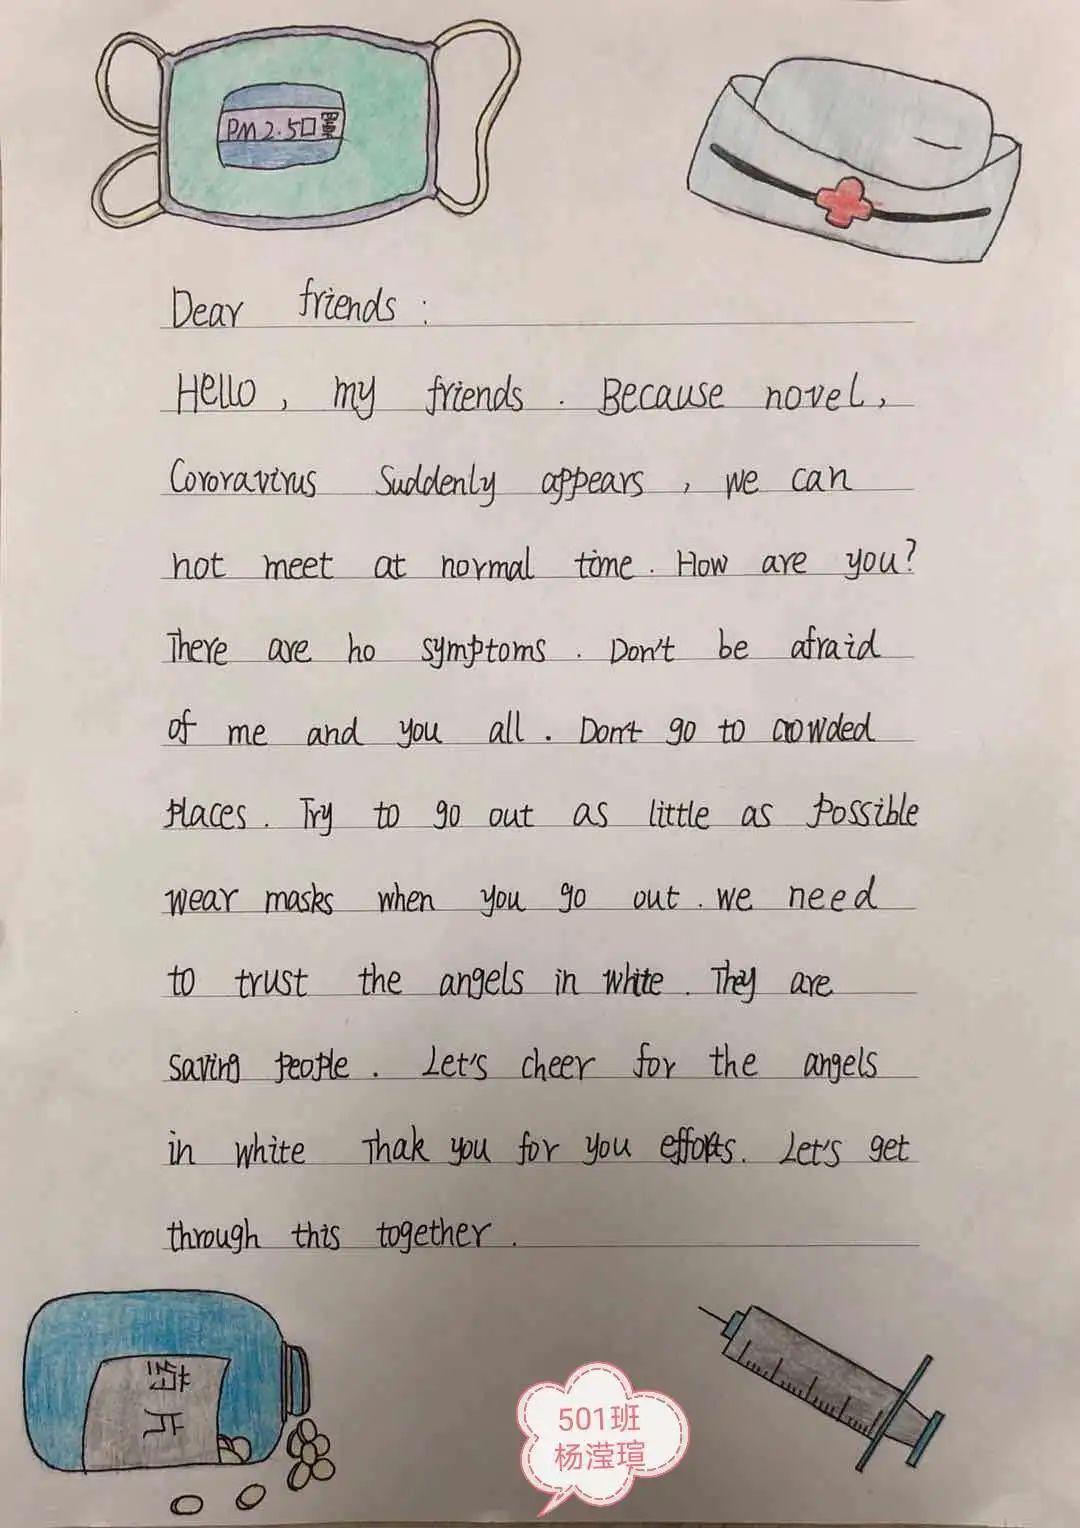 PM2.5口罩
Dear friends:
Hello, my friends. Because novel,
Cororavirus Suddenly appears, we can
not meet at normal time. How are you?
There are no symptoms. Don't be afraid
of me and you all. Don't go to crowded
places. Try to go out as little as possible
wear masks when you go out. we need
to trust the angels in white. They are
saving people. Let's cheer for the angels
in white Thak you for you efforts. Let's get
through this together.
药片
501班
杨滢瑄